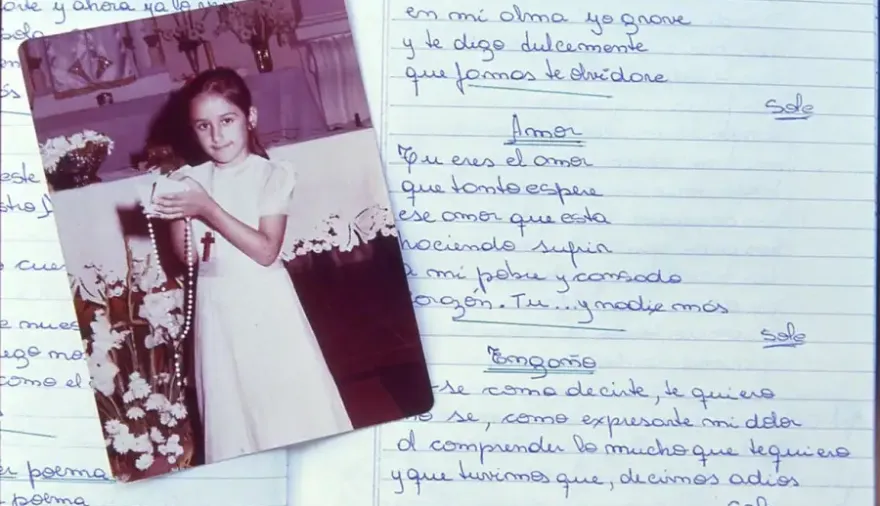 arte y ahora ya lo
este
poema
poema
en mi alma yo grave
y te digo dulcemente
que jamas te olvidare
Sole
Amor
Tu eres el amor
que tanto espere
ese amor que esta
haciendo sufrir
a mi pobre y cansado
corazón. Tu... y nadie más
Sole
Engaño
se como decirte, te quiero
no se, como expresarte mi dolor
al comprender lo mucho que te quiero
y que tuvimos que, decirnos adios